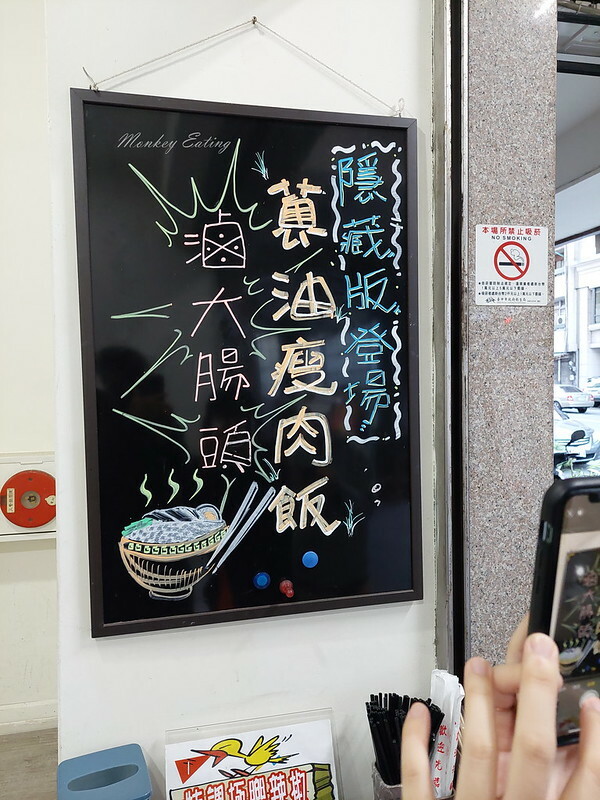 Monkey Eating
隱藏版登場
蔥油瘦肉飯
滷大腸頭
本場所禁止吸菸
NO SMOKING